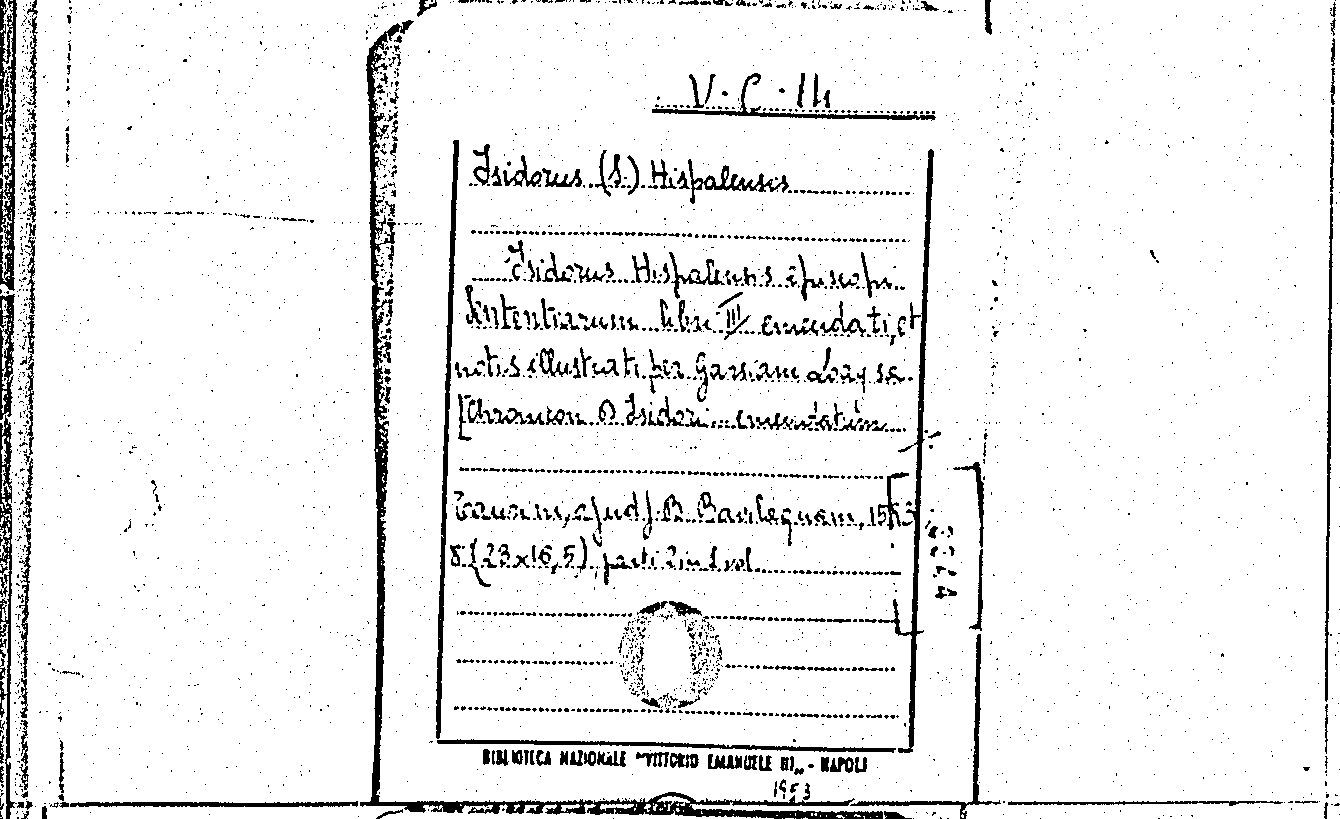 V. C. 14
Isidorus (S.) Hispalensis
Isidorus Hispalensis episcopi
Sententiarum libri III emendati, et
notis illustrati per Garsiam Loaysa
[Chronicon D. Isidori... emendatum
Taurini, apud J. B. Bevilaquam, 1593
8° (23x16,5), parti 2 in 1 vol.
BIBLIOTECA NAZIONALE "VITTORIO EMANUELE III„ - NAPOLI
1953